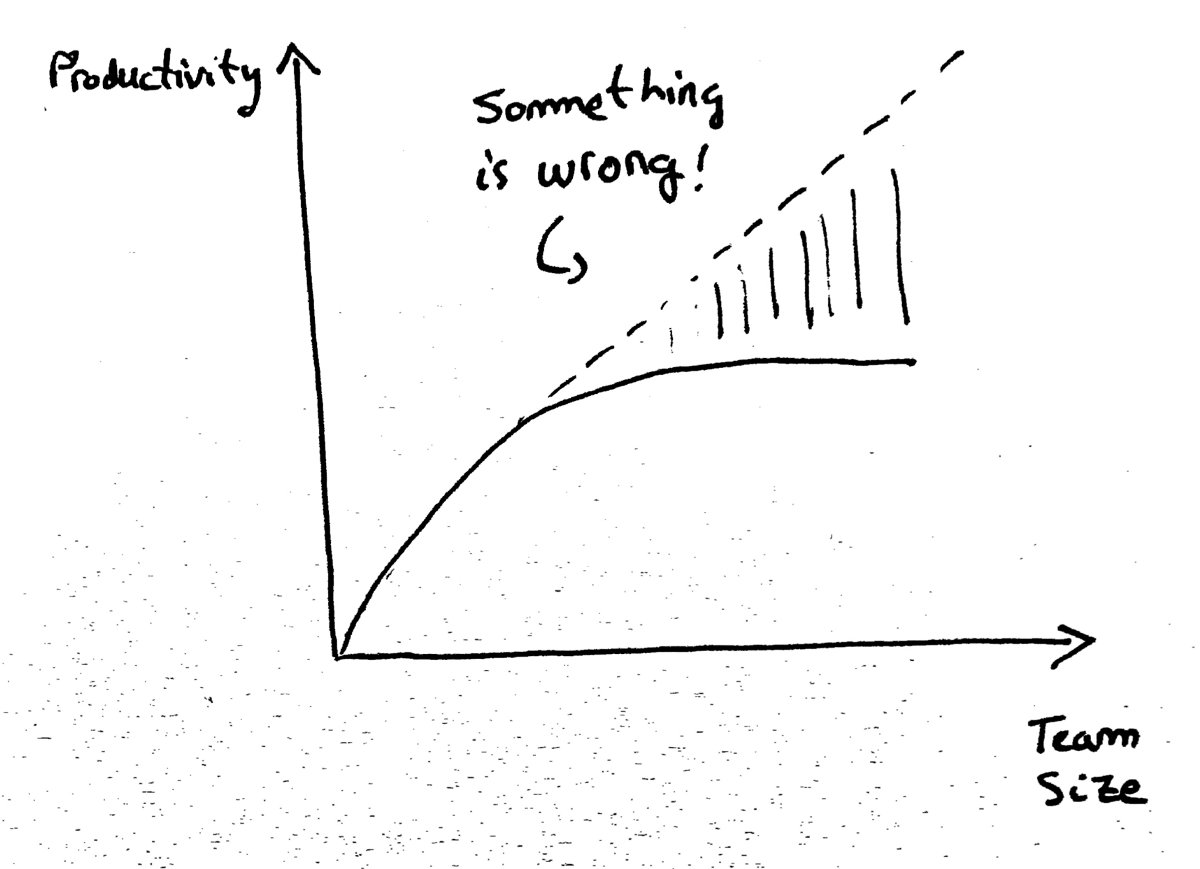 Productivity
Sommething
is wrong!
Team
Size